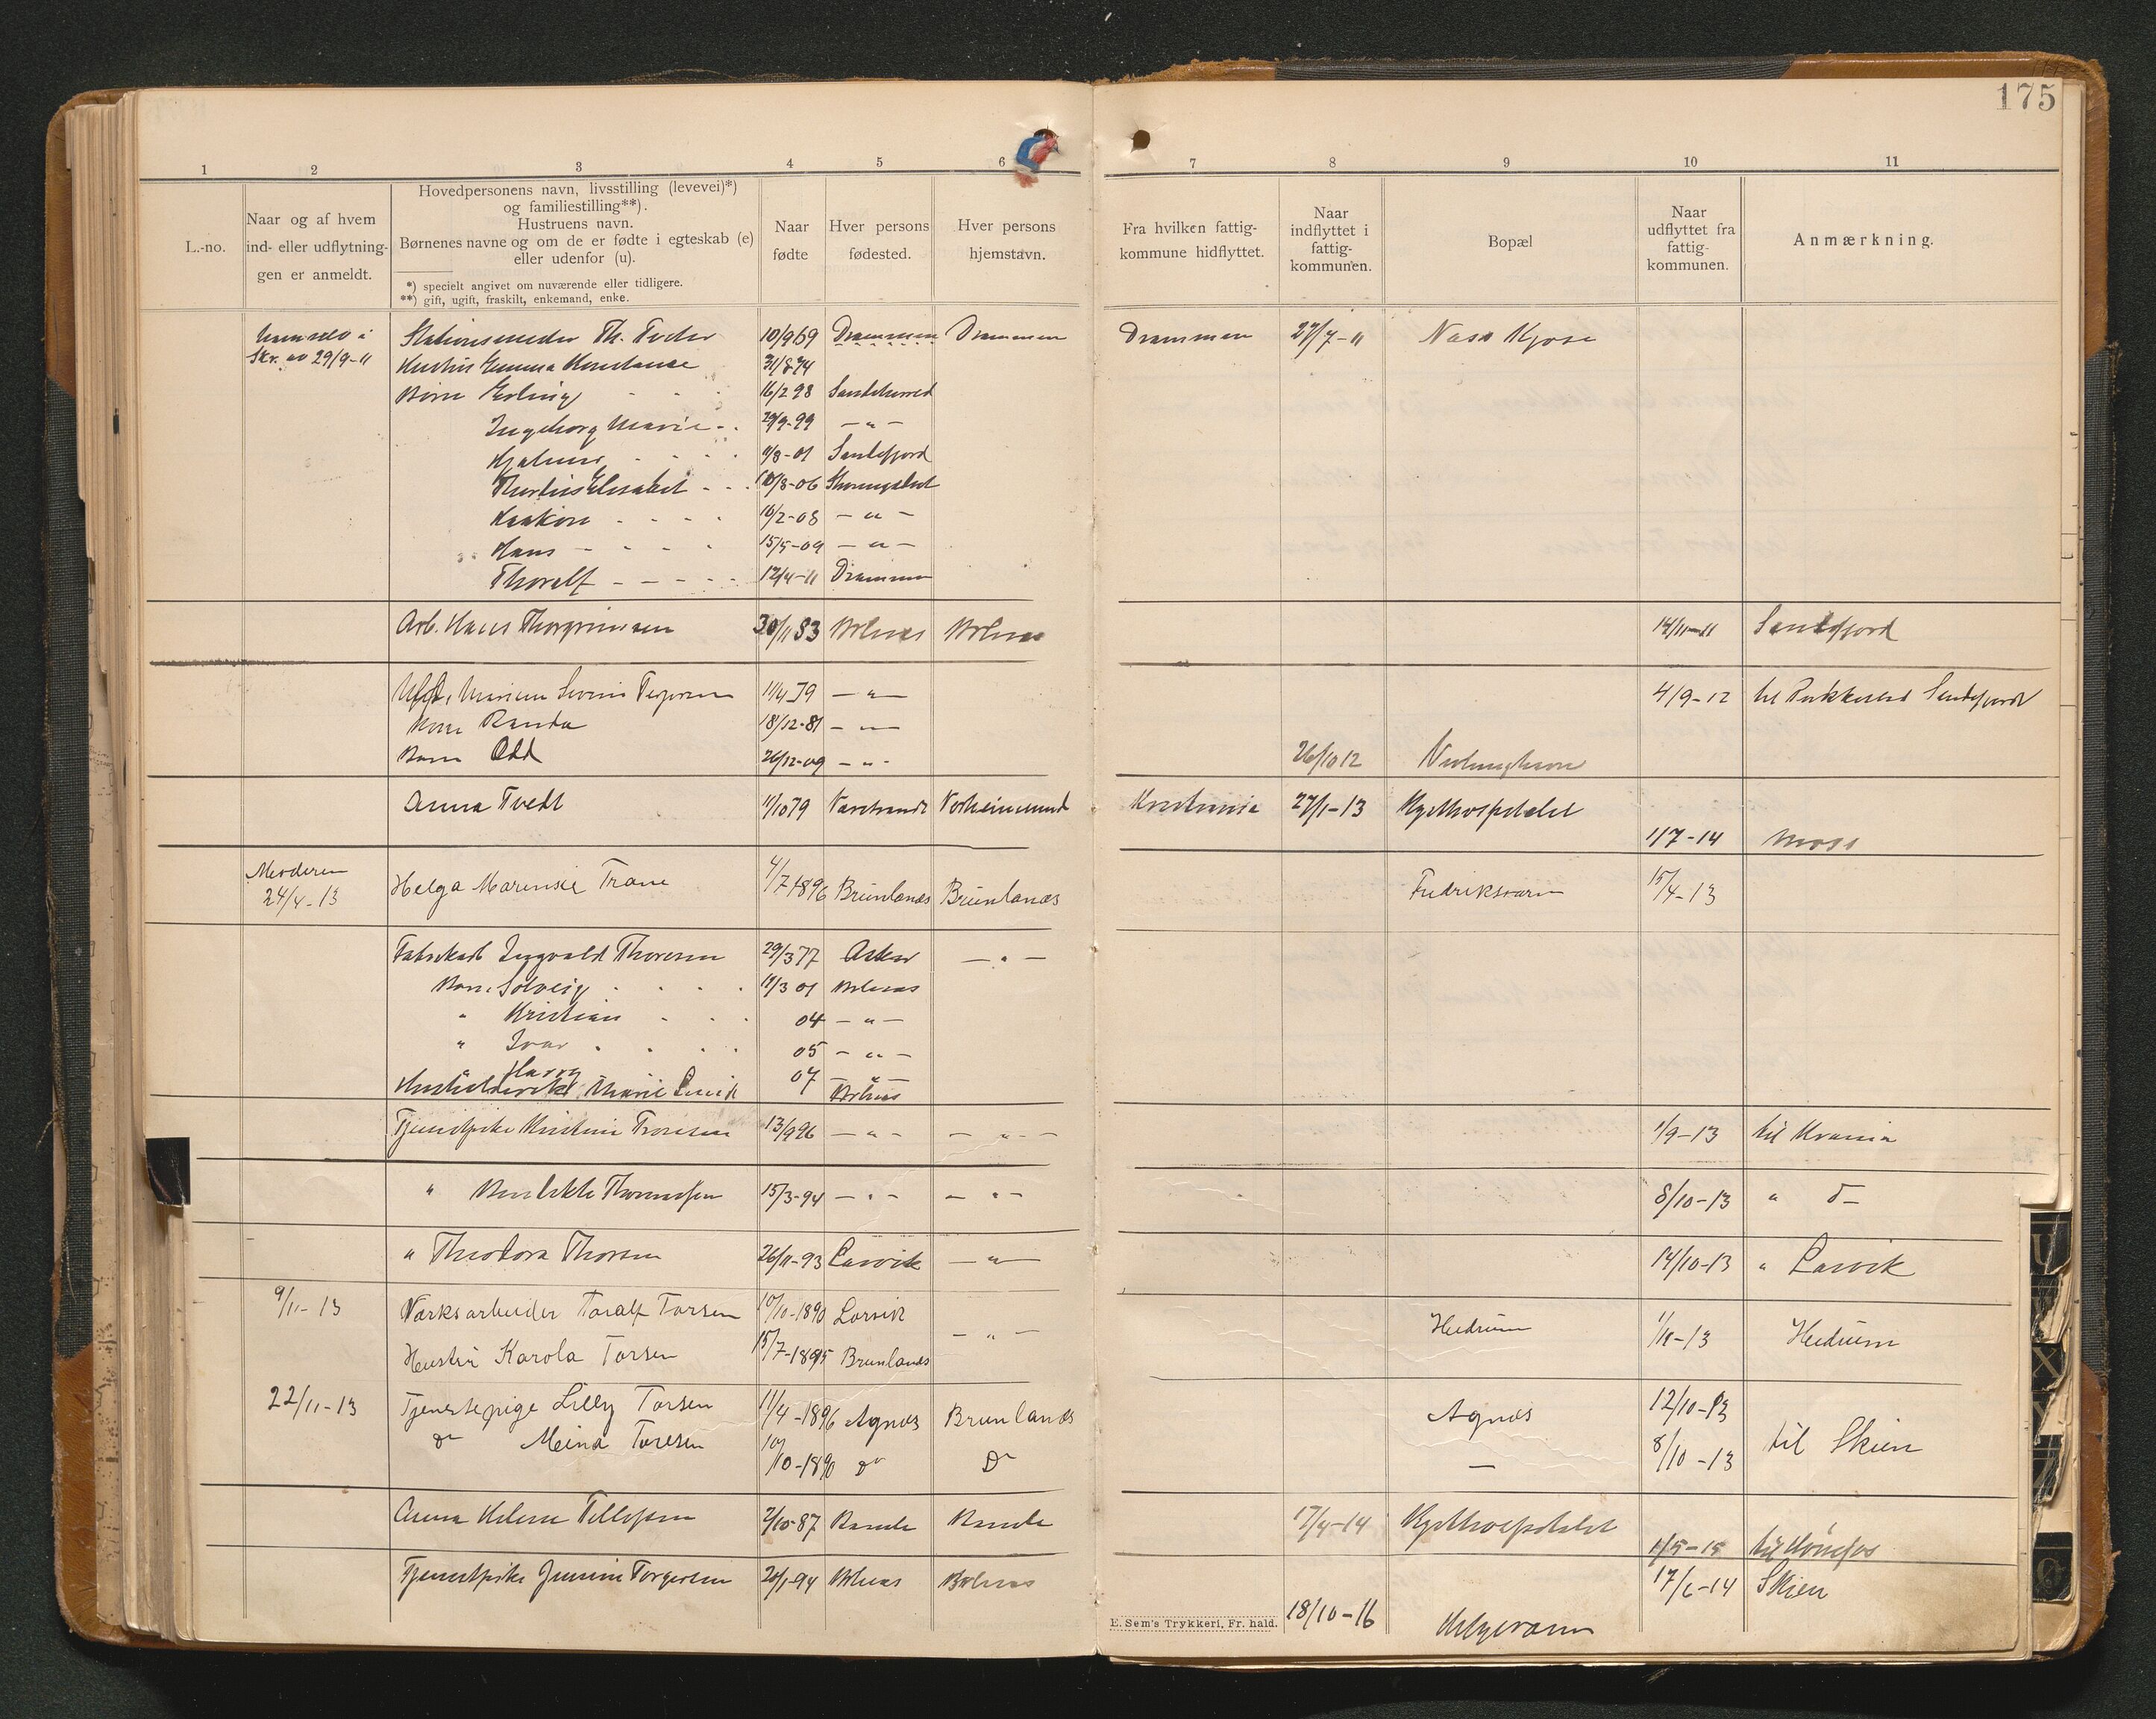 175
1 2 3 4 5 6 7 8 9 10 11
L.-no.
Naar og af hvem
ind- eller udflytnin-
gen er anmeldt.
Hovedpersonens navn, livsstilling (levevei)*)
og familiestilling**).
Hustruens navn.
Børnenes navne og om de er fødte i egteskab (e)
eller udenfor (u).
*) specielt angivet om nuværende eller tidligere.
**) gift, ugift, fraskilt, enkemand, enke.
Naar
fødte
Hver persons
fødested.
Hver persons
hjemstavn.
Fra hvilken fattig-
kommune hidflyttet.
Naar
indflyttet i
fattig-
kommunen.
Bopæl
Naar
udflyttet fra
fattig-
kommunen.
Anmærkning.
Th. 10/9 69 Drammen Drammen Drammen 27/7-11 Kjose
Skr. av 29/9-11 Hustru Emma Konstanse 31/8 74
Børn Erling 16/2 98 Sandeherred
Ingeborg Marie 29/9-99 - " -
Hjalmar 11/8-01 Sandefjord
Elisabet 10/8-06
Haakon 10/2-08 - " -
Hans 15/5-09 - " -
Thoralf 12/4-11 Drammen
Arb. Hans Thorgrimsen 30/11 83 Brlnæs Brlnæs 14/11-11 Sandefjord
11/4 79 - " - 4/9-12 til Sandefjord
Kone Randa 18/12-81 - " -
Barn Odd 26/12-09 - " - 26/10 12
Anna Tvedt 11/10 79 Norheimsund Kristiania 27/1-13 Kysthospitalet
1/7-14 Moss
Moderen
24/4-13 Helga Marensie Trane 4/7 1896 Brunlanæs Brunlanæs Fredriksværn 15/4-13
Fabrikarb Ingvald Thoresen 29/3 77 Asker - " -
Barn Solveig 11/3 01 Brlnæs
" Kristian 04 - " -
" Ivar 05 - " -
Harry 07 - " -
Marie Brlnæs
Tjenestpike Kristine Thoresen 13/9 96 - " - - " - 1/9-13 til Krania
" Benedikte Thomassen 15/3-94 - " - - " - 8/10-13 " d-
" Theodora Thorsen 26/11-93 Larvik - " - 14/10-13 " Larvik
9/11-13 Værksarbeider Toralf Torsen 10/11-1890 Larvik
- " - Hedrum 1/11-13 Hedrum
Hustru Karola Torsen 15/7-1895 Brunlanæs
22/11-13 Tjenestepige Lilly Torsen 11/4-1896 Agnes Brunlanæs Agnes 12/10-13
do Meina Toresen 10/10-1890 do Do - 8/10-13 til Skien
Anna Helene Tellefsen 2/10-87 Bamle Bamle 17/4-14 Kysthospitalet
1/5-15 til Hønefos
Tjenestpike Jensine Torgersen 20/1-94 Brlnæs Brlnæs 17/6-14 Skien
18/10-16 Helgeroen
E. Sem's Trykkeri, Fr. hald.